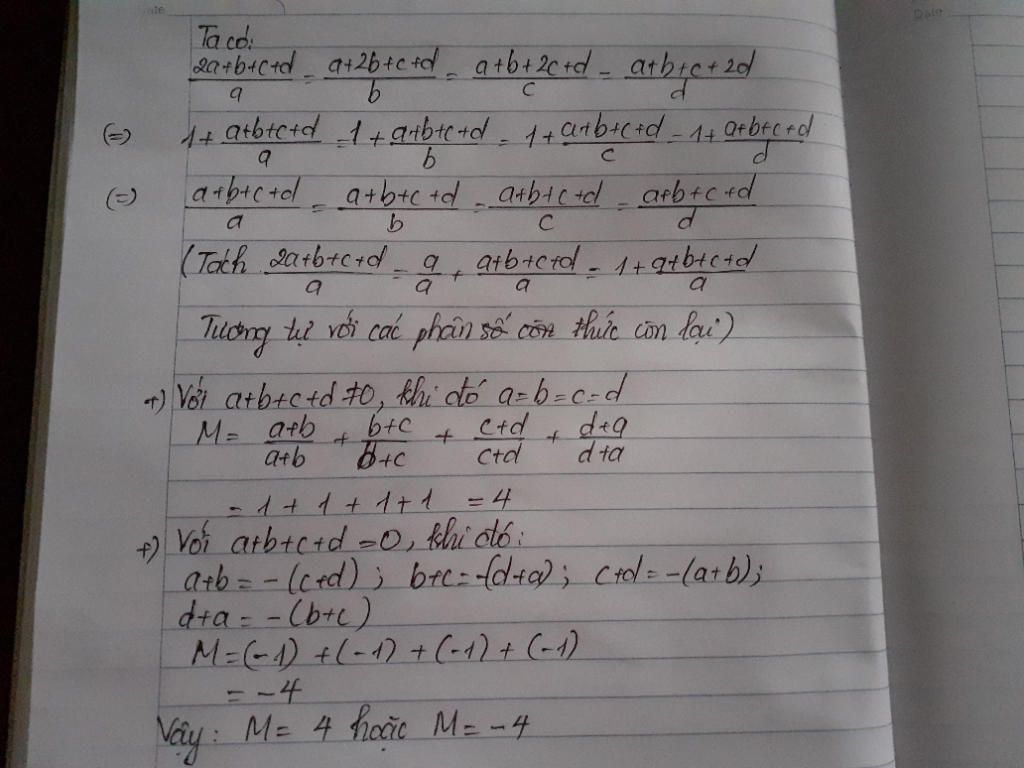 Date
Date
Ta có:
2a+b+c+d/a = a+2b+c+d/b = a+b+2c+d/c = a+b+c+2d/d
(=) 1 + a+b+c+d/a = 1 + a+b+c+d/b = 1 + a+b+c+d/c = 1 + a+b+c+d/d
(=) a+b+c+d/a = a+b+c+d/b = a+b+c+d/c = a+b+c+d/d
(Tách 2a+b+c+d/a = a/a + a+b+c+d/a = 1 + a+b+c+d/a
Tương tự với các phân số còn thức còn lại)
+) Với a+b+c+d ≠0, khi đó a=b=c=d
M = a+b/a+b + b+c/b+c + c+d/c+d + d+a/d+a
= 1 + 1 + 1 + 1 = 4
+) Với a+b+c+d = 0, khi đó:
a+b = -(c+d) ; b+c = -(d+a) ; c+d = -(a+b) ;
d+a = -(b+c)
M = (-1) + (-1) + (-1) + (-1)
= -4
Vậy: M = 4 hoặc M = -4